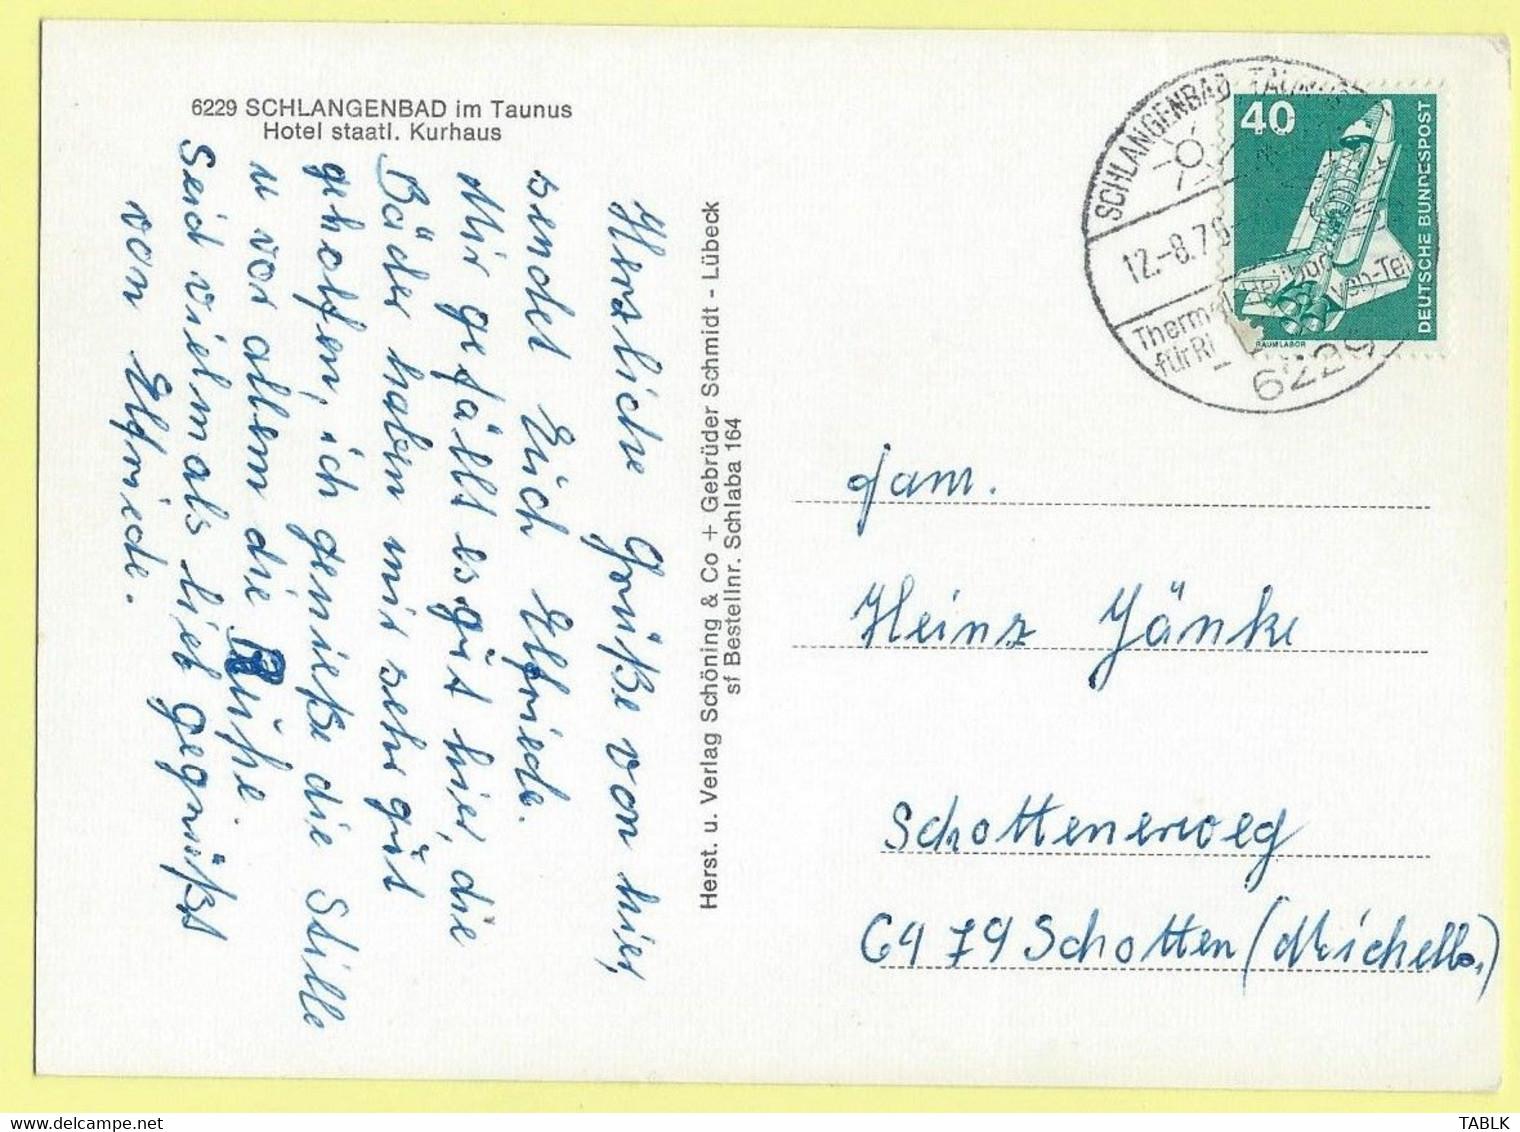 6229 SCHLANGENBAD im Taunus
Hotel staatl. Kurhaus
Herzliche Grüße von hier,
sendet Euch Elfriede.
Mir gefällt es gut hier, die
Bäder haben mir sehr gut
geholfen, ich genieße die Stille
u vor allem die Ruhe.
Seid vielmals lieb gegrüßt
von Elfriede.
Herst. u. Verlag Schöning & Co + Gebrüder Schmidt - Lübeck
sf Bestellnr. Schlaba 164
SCHLANGENBAD TAUNUS
12.-8.76
Thermal
für
6229
40
DEUTSCHE BUNDESPOST
RAUMLABOR
Fam.
Heinz Jänke
Schottenerweg
6479 Schotten (Michelb.)
TABLK